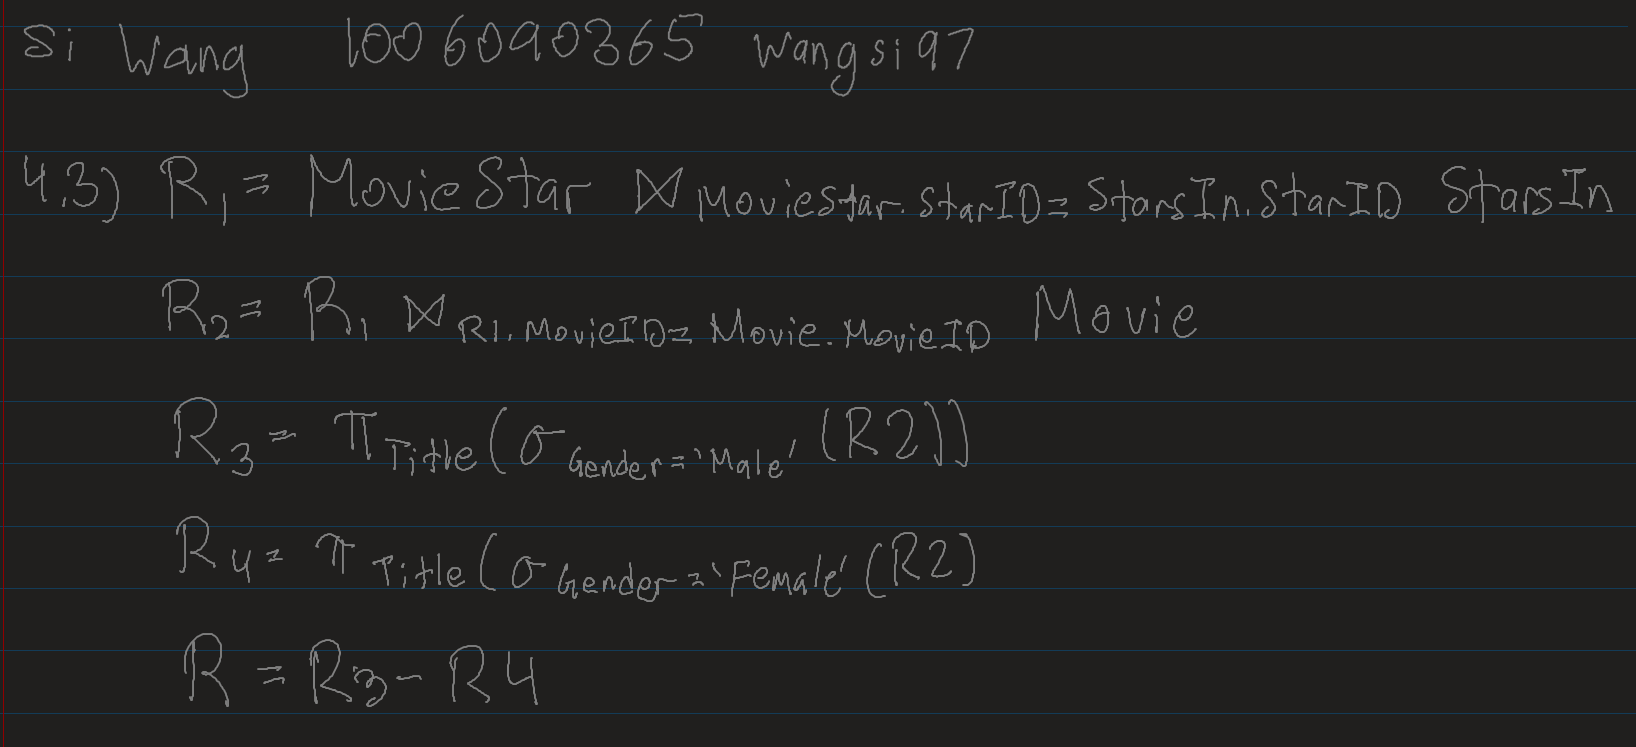 Si Wang 1006090365 wangsi97
4.3) R₁ = MovieStar ⋈ MovieStar.StarID = StarsIn.StarID StarsIn
R₂ = R₁ ⋈ R1.MovieID = Movie.MovieID Movie
R₃ = π Title (σ Gender = 'Male' (R2))
R₄ = π Title (σ Gender = 'Female' (R2)
R = R₃ - R4